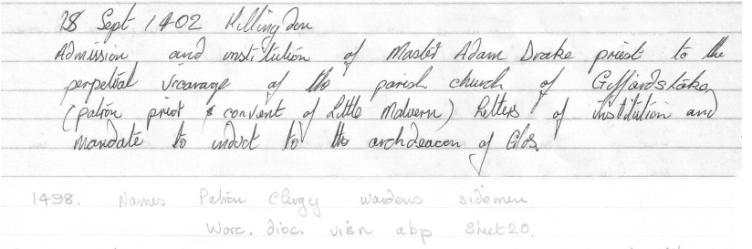 28 Sept 1402 Hillingdon
Admission and institution of Master Adam Drake priest to the
perpetual vicarage of the parish church of Giffardstoke
(patron prior & convent of Little Malvern) Letters of institution and
mandate to induct to the archdeacon of Glos.
1498. Names Patron Clergy wardens sidemen
Worc. dioc visn abp sheet 20.